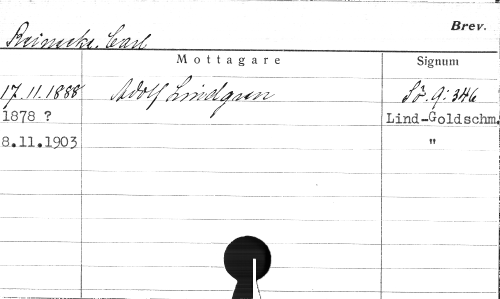 Brev.
Reinecke, Carl
Mottagare Signum
17.11.1888 Adolf Lindgren Sö. 9:346
1878 ? Lind-Goldschm.
8.11.1903 "